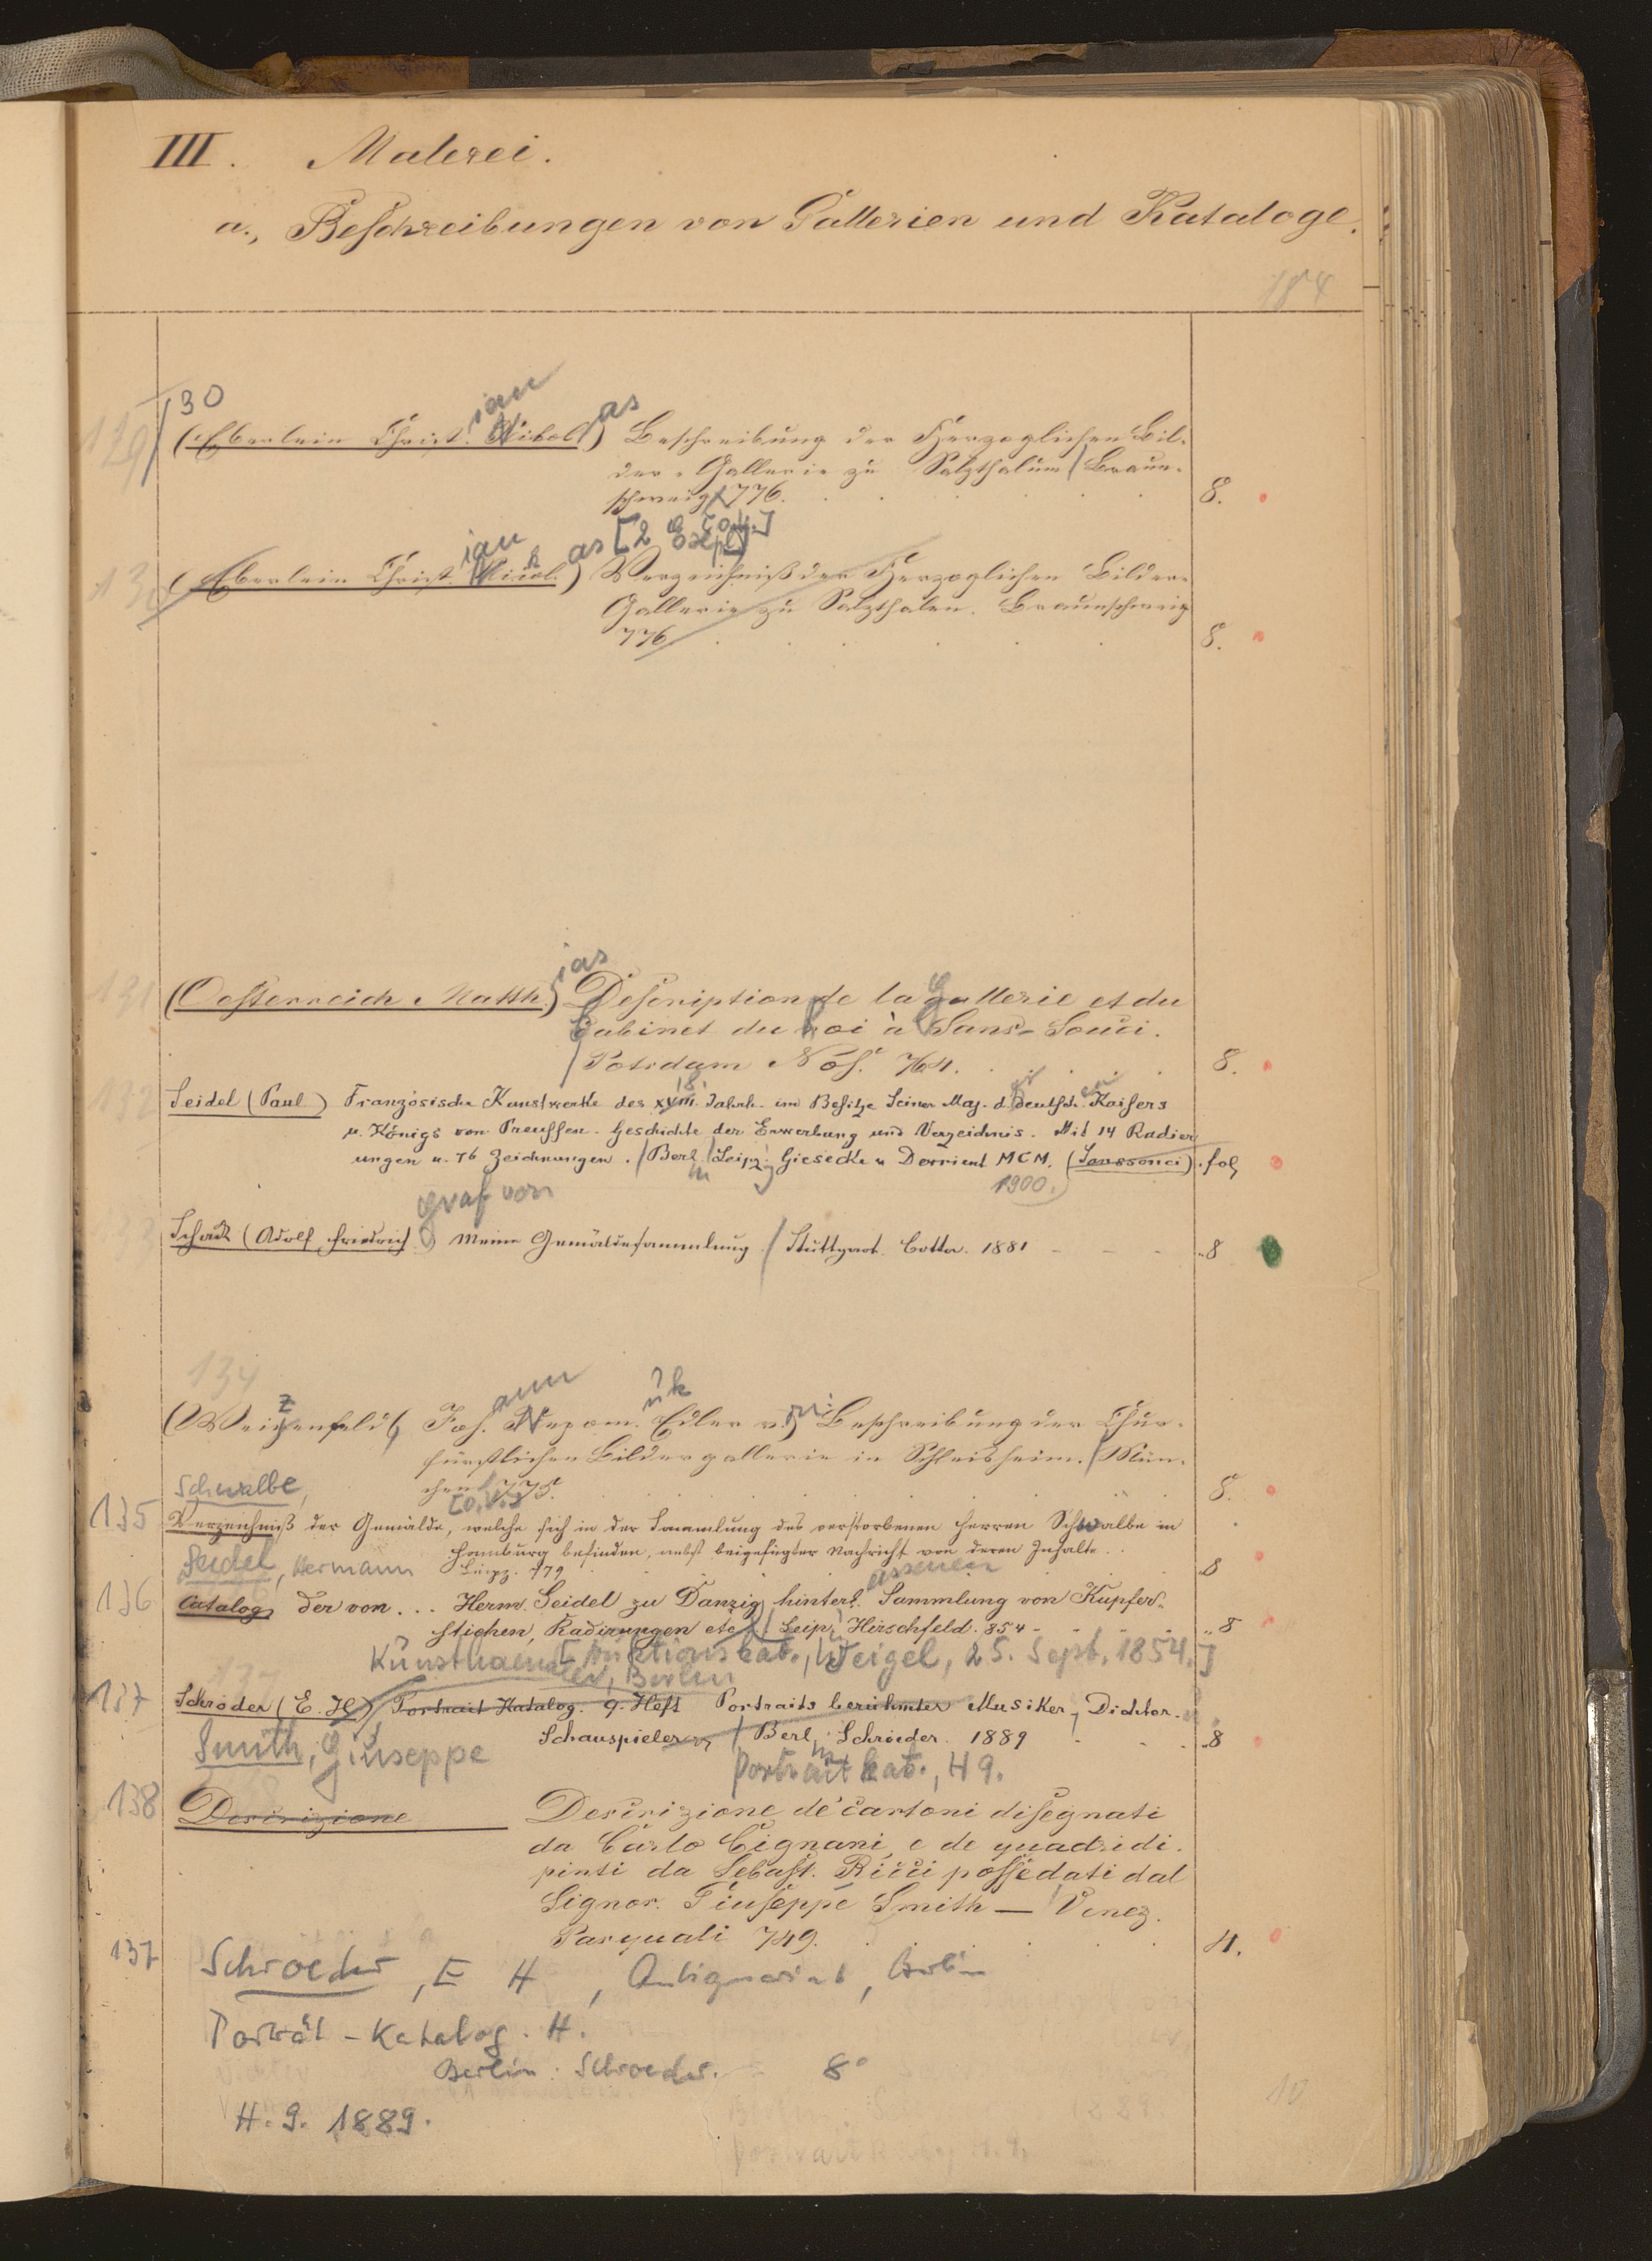 III. Malerei.
a., Beschreibungen von Gallerien und Kataloge.
184
130
129
ian as
(Eberlein Christ. Nikol.) Beschreibung der Herzoglichen Bil-
der-Gallerie zu Salzthalum / Braun-
schweig 776. 8.
[2 Expl.]
ian k as
130 (Eberlein Christ. Nicol.) Verzeichniß der Herzoglichen Bilder-
Gallerie zu Salzthalen. Braunschweig
776 8.
ias
131 (Oesterreich Matth.) Description de la Gallerie et du
Cabinet du Roi à Sans-Souci.
Potsdam Voss. 764. 8.
18.
132 Seidel (Paul) Französische Kunstwerke des XVIII. Jahrh. im Besitze Seiner Maj. d. deutsch. Kaisers
u. Königs von Preussen. Geschichte der Erwerbung und Verzeichnis. Mit 14 Radier
ungen u. 76 Zeichnungen. / Berl. / Leipz. Giesecke u Devrient MCM. (Sanssouci) fol
1900.
Graf von
Schack (Adolf Friedrich) Meine Gemäldesammlung / Stuttgart. Cotta. 1881 8
134
z ann uk
(Weizenfeld, Joh. Nepom. Edler v.) Beschreibung der Chur-
fürstlichen Bildergallerie in Schleisheim. / Mün-
chen 775. 8.
Schwalbe, [o.V.]
135 Verzeichniß der Gemälde, welche sich in der Sammlung des verstorbenen Herren Schwalbe in
Hamburg befinden, nebst beigefügter Nachricht von deren Inhalte.
Leipz. 779 8
Seidel, Hermann assenen
136 Catalog der von... Herm. Seidel zu Danzig hinterl. Sammlung von Kupfer-
stichen, Radirungen etc / Leipz. Hirschfeld. 854 8
[Auktionskat., Weigel, 25. Sept. 1854.]
Kunsthaendler, Berlin
137
137 Schröder (E. H.) Portrait Katalog. 9. Heft Portraits berühmter Musiker, Dichter.
Schauspieler / Berl. Schroeder. 1889 8
Smith, Giuseppe Portrait kat., H 9.
138 Descrizione Descrizione de' cartoni disegnati
da Carlo Cignani, e de quadri di-
pinti da Sebast. Ricci possedati dal
Signor. Giuseppe Smith — Venez.
Pasquali 749. 4.
137 Schroeder, E H, Antiquariat, Berlin
Porträt-Katalog. H.
Berlin: Schroeder. 8°
H. 9. 1889.
10